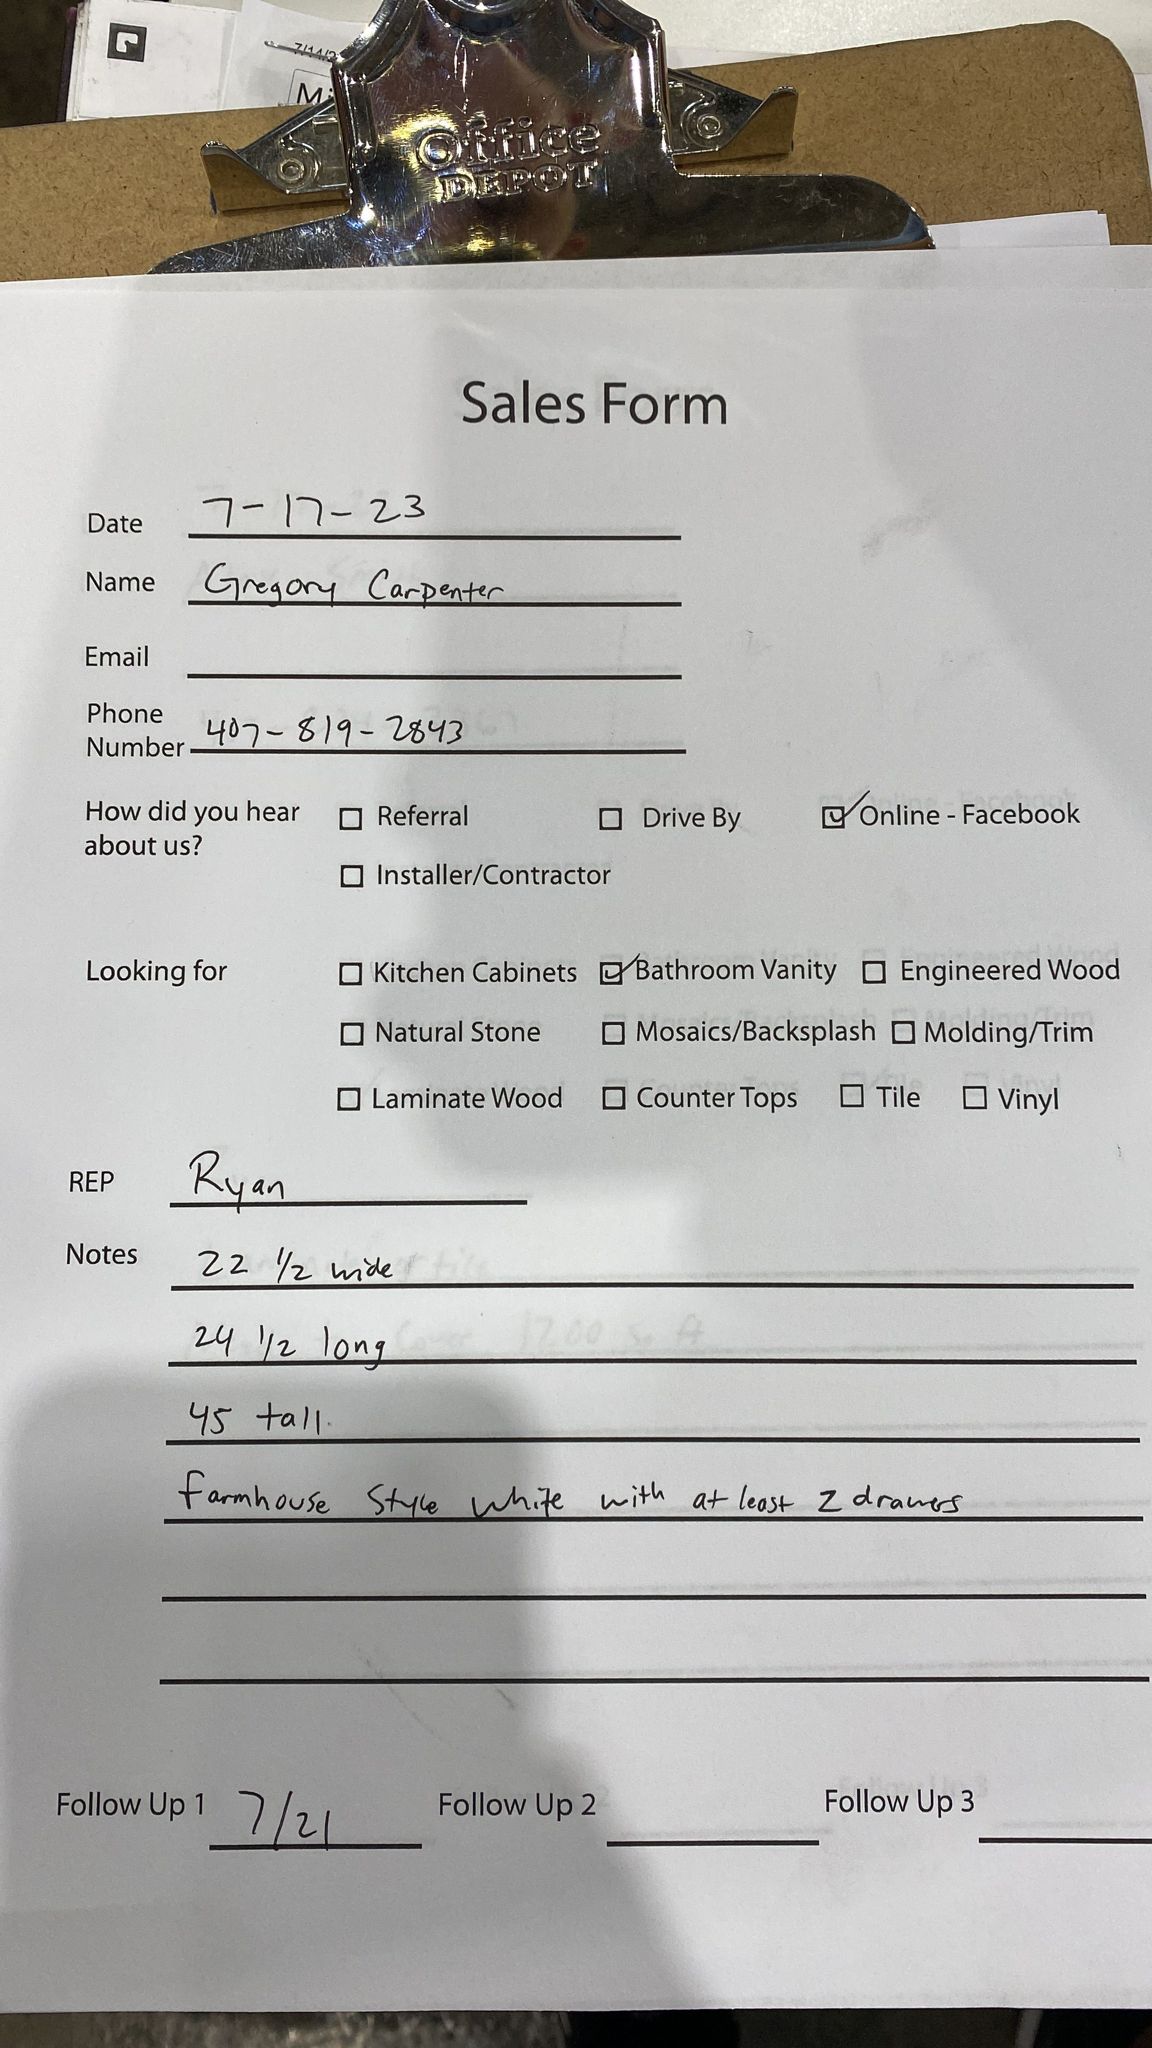 7/14/2
Mi
Office
DEPOT
Sales Form
Date 7-17-23
Name Gregory Carpenter
Email
Phone
Number 407-819-2843
How did you hear
about us?
☐ Referral ☐ Drive By ☑ Online - Facebook
☐ Installer/Contractor
Looking for ☐ Kitchen Cabinets ☑ Bathroom Vanity ☐ Engineered Wood
☐ Natural Stone ☐ Mosaics/Backsplash ☐ Molding/Trim
☐ Laminate Wood ☐ Counter Tops ☐ Tile ☐ Vinyl
REP Ryan
Notes 22 1/2 wide
24 1/2 long
45 tall.
farmhouse Style white with at least 2 drawers
Follow Up 1 7/21 Follow Up 2 Follow Up 3